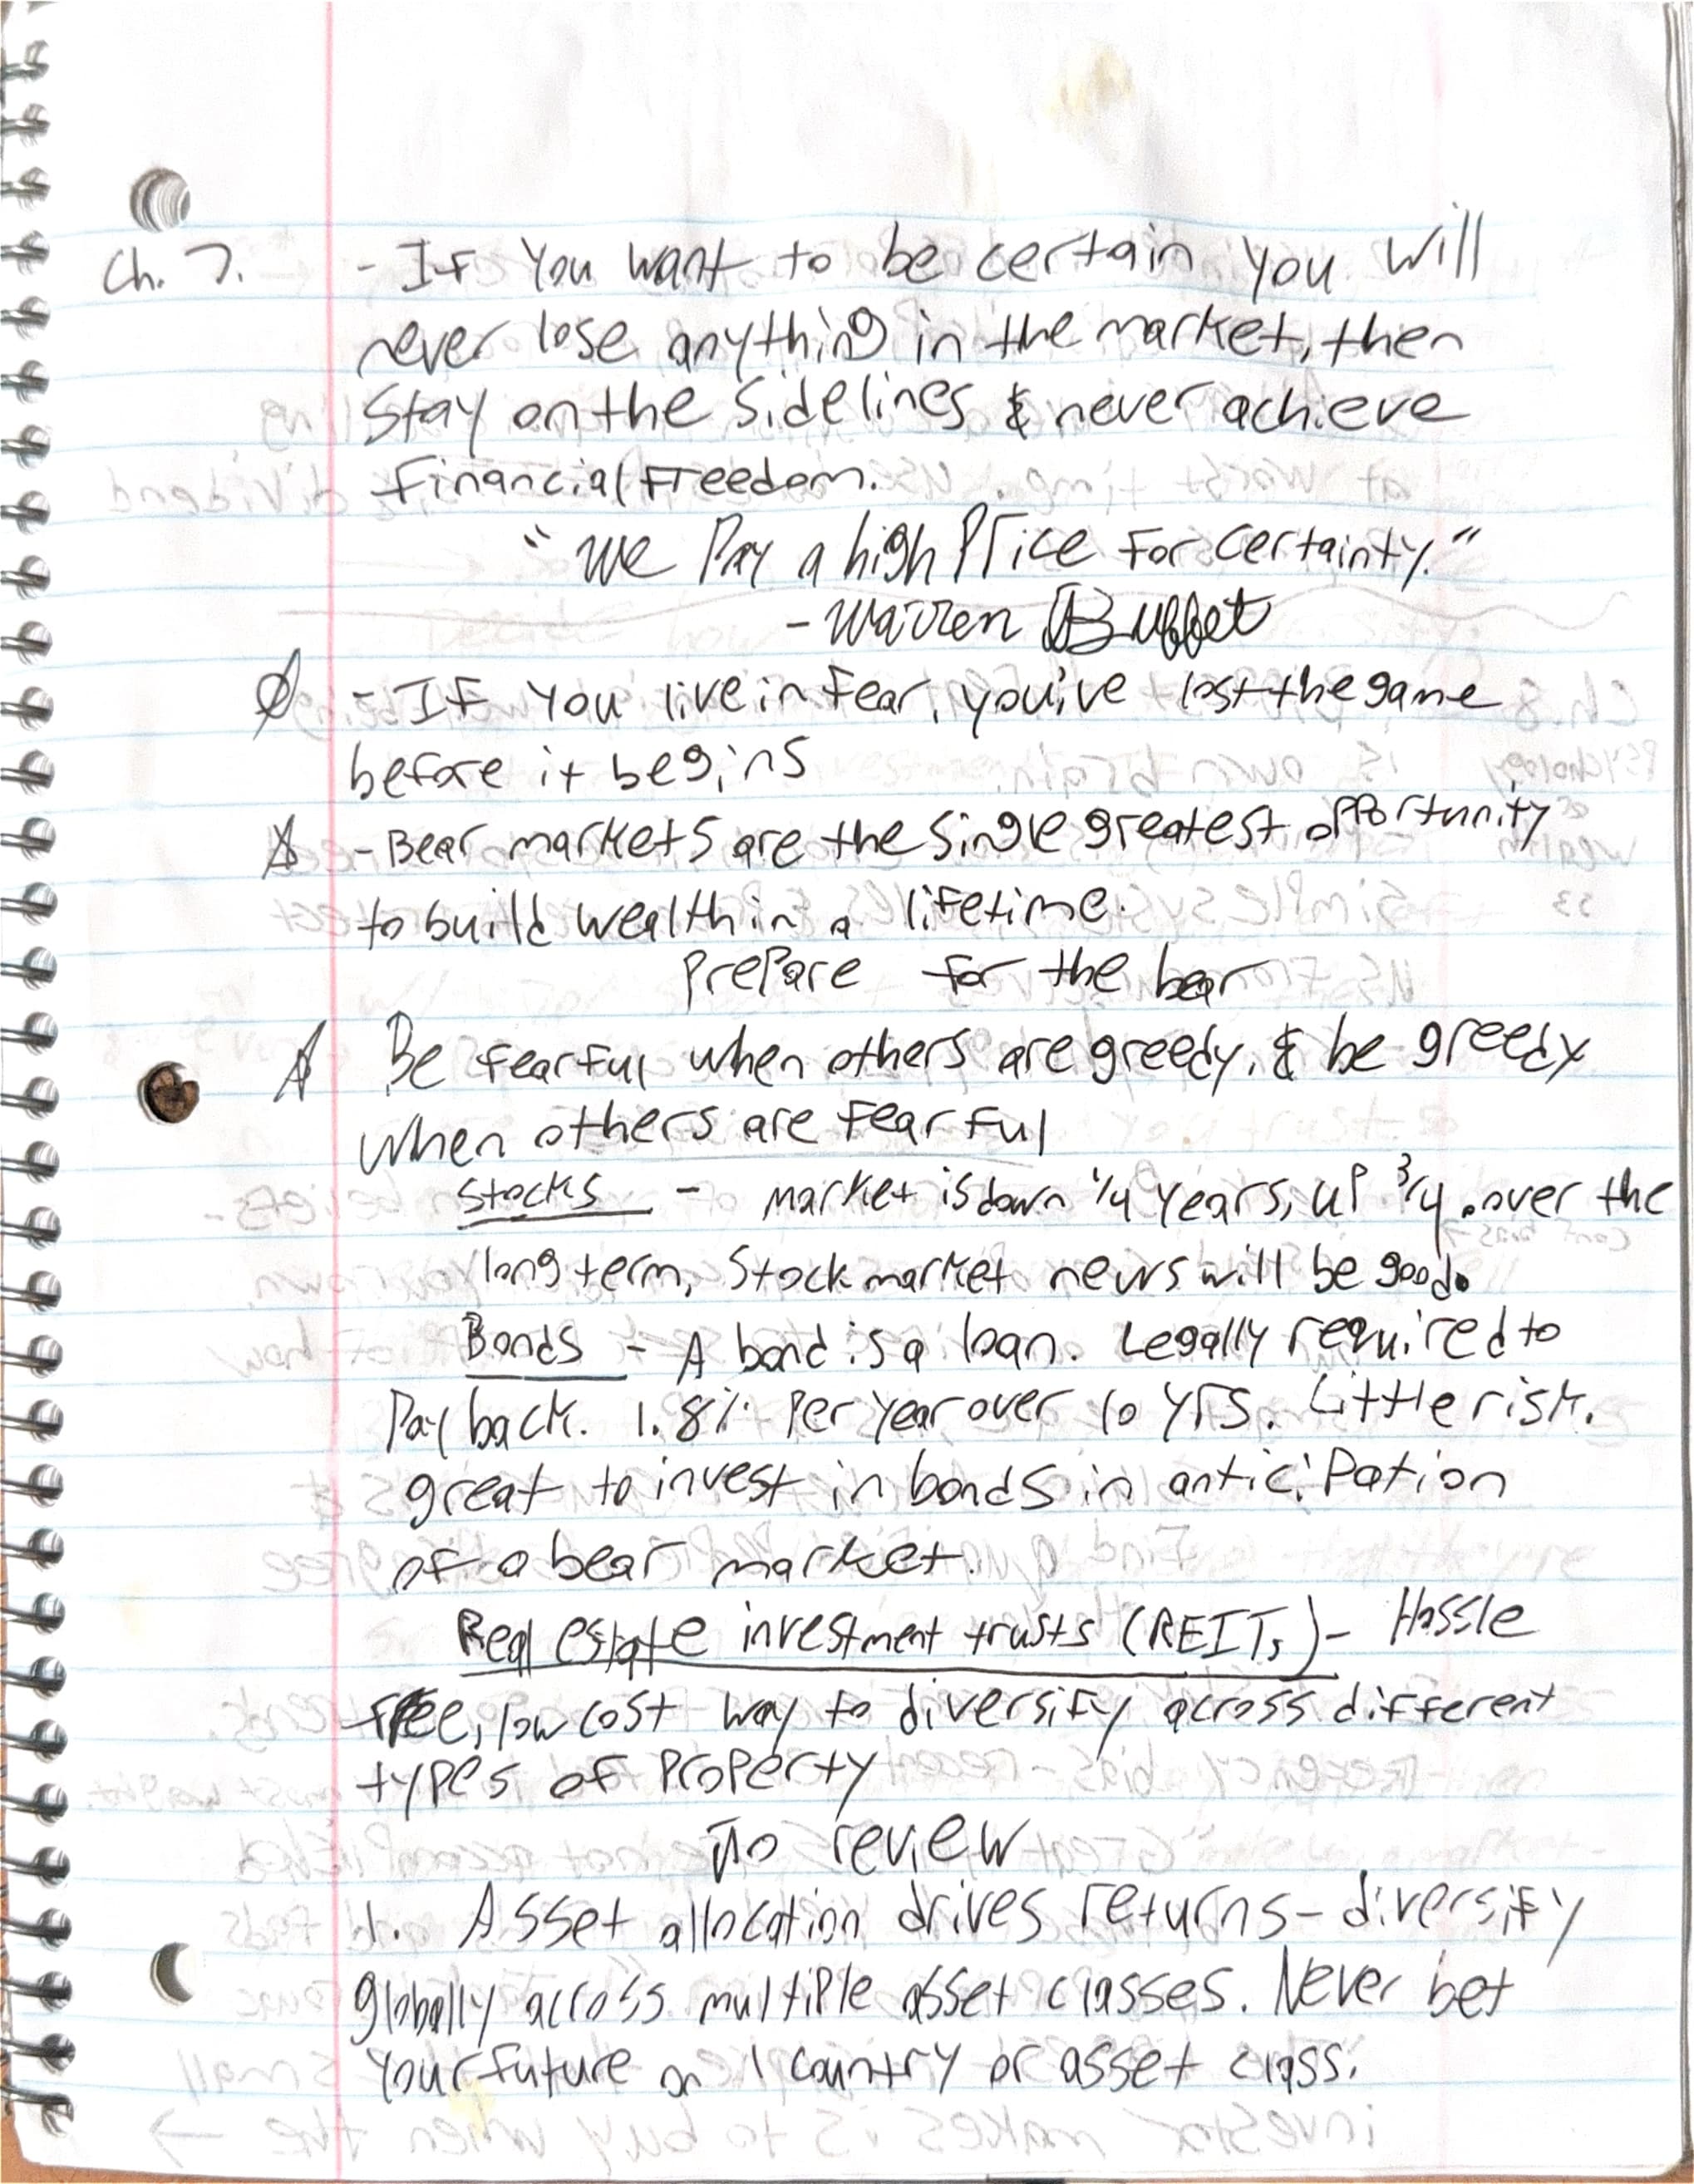 Ch. 7. - If You want to be certain you will
never lose anything in the market, then
Stay on the Sidelines & never achieve
financial Freedom.
"We Pay a high Price For certainty."
- Warren Buffet
- If You live in Fear, you've lost the game
before it begins
- Bear markets are the single greatest opportunity
to build wealth in a lifetime.
Prepare for the bear
Be fearful when others are greedy, & be greedy
when others are fearful
Stocks - market is down 1/4 years, up 3/4. over the
long term, Stock market news will be good.
Bonds - A bond is a loan. Legally required to
Pay back. 1.8% Per year over 10 yrs. Little risk.
great to invest in bonds in anticipation
of a bear market.
Real estate investment trusts (REITs) - Hassle
free, low cost way to diversify across different
types of Property
To review
1. Asset allocation drives returns - diversify
globally across multiple asset classes. Never bet
your future on 1 country or asset class.